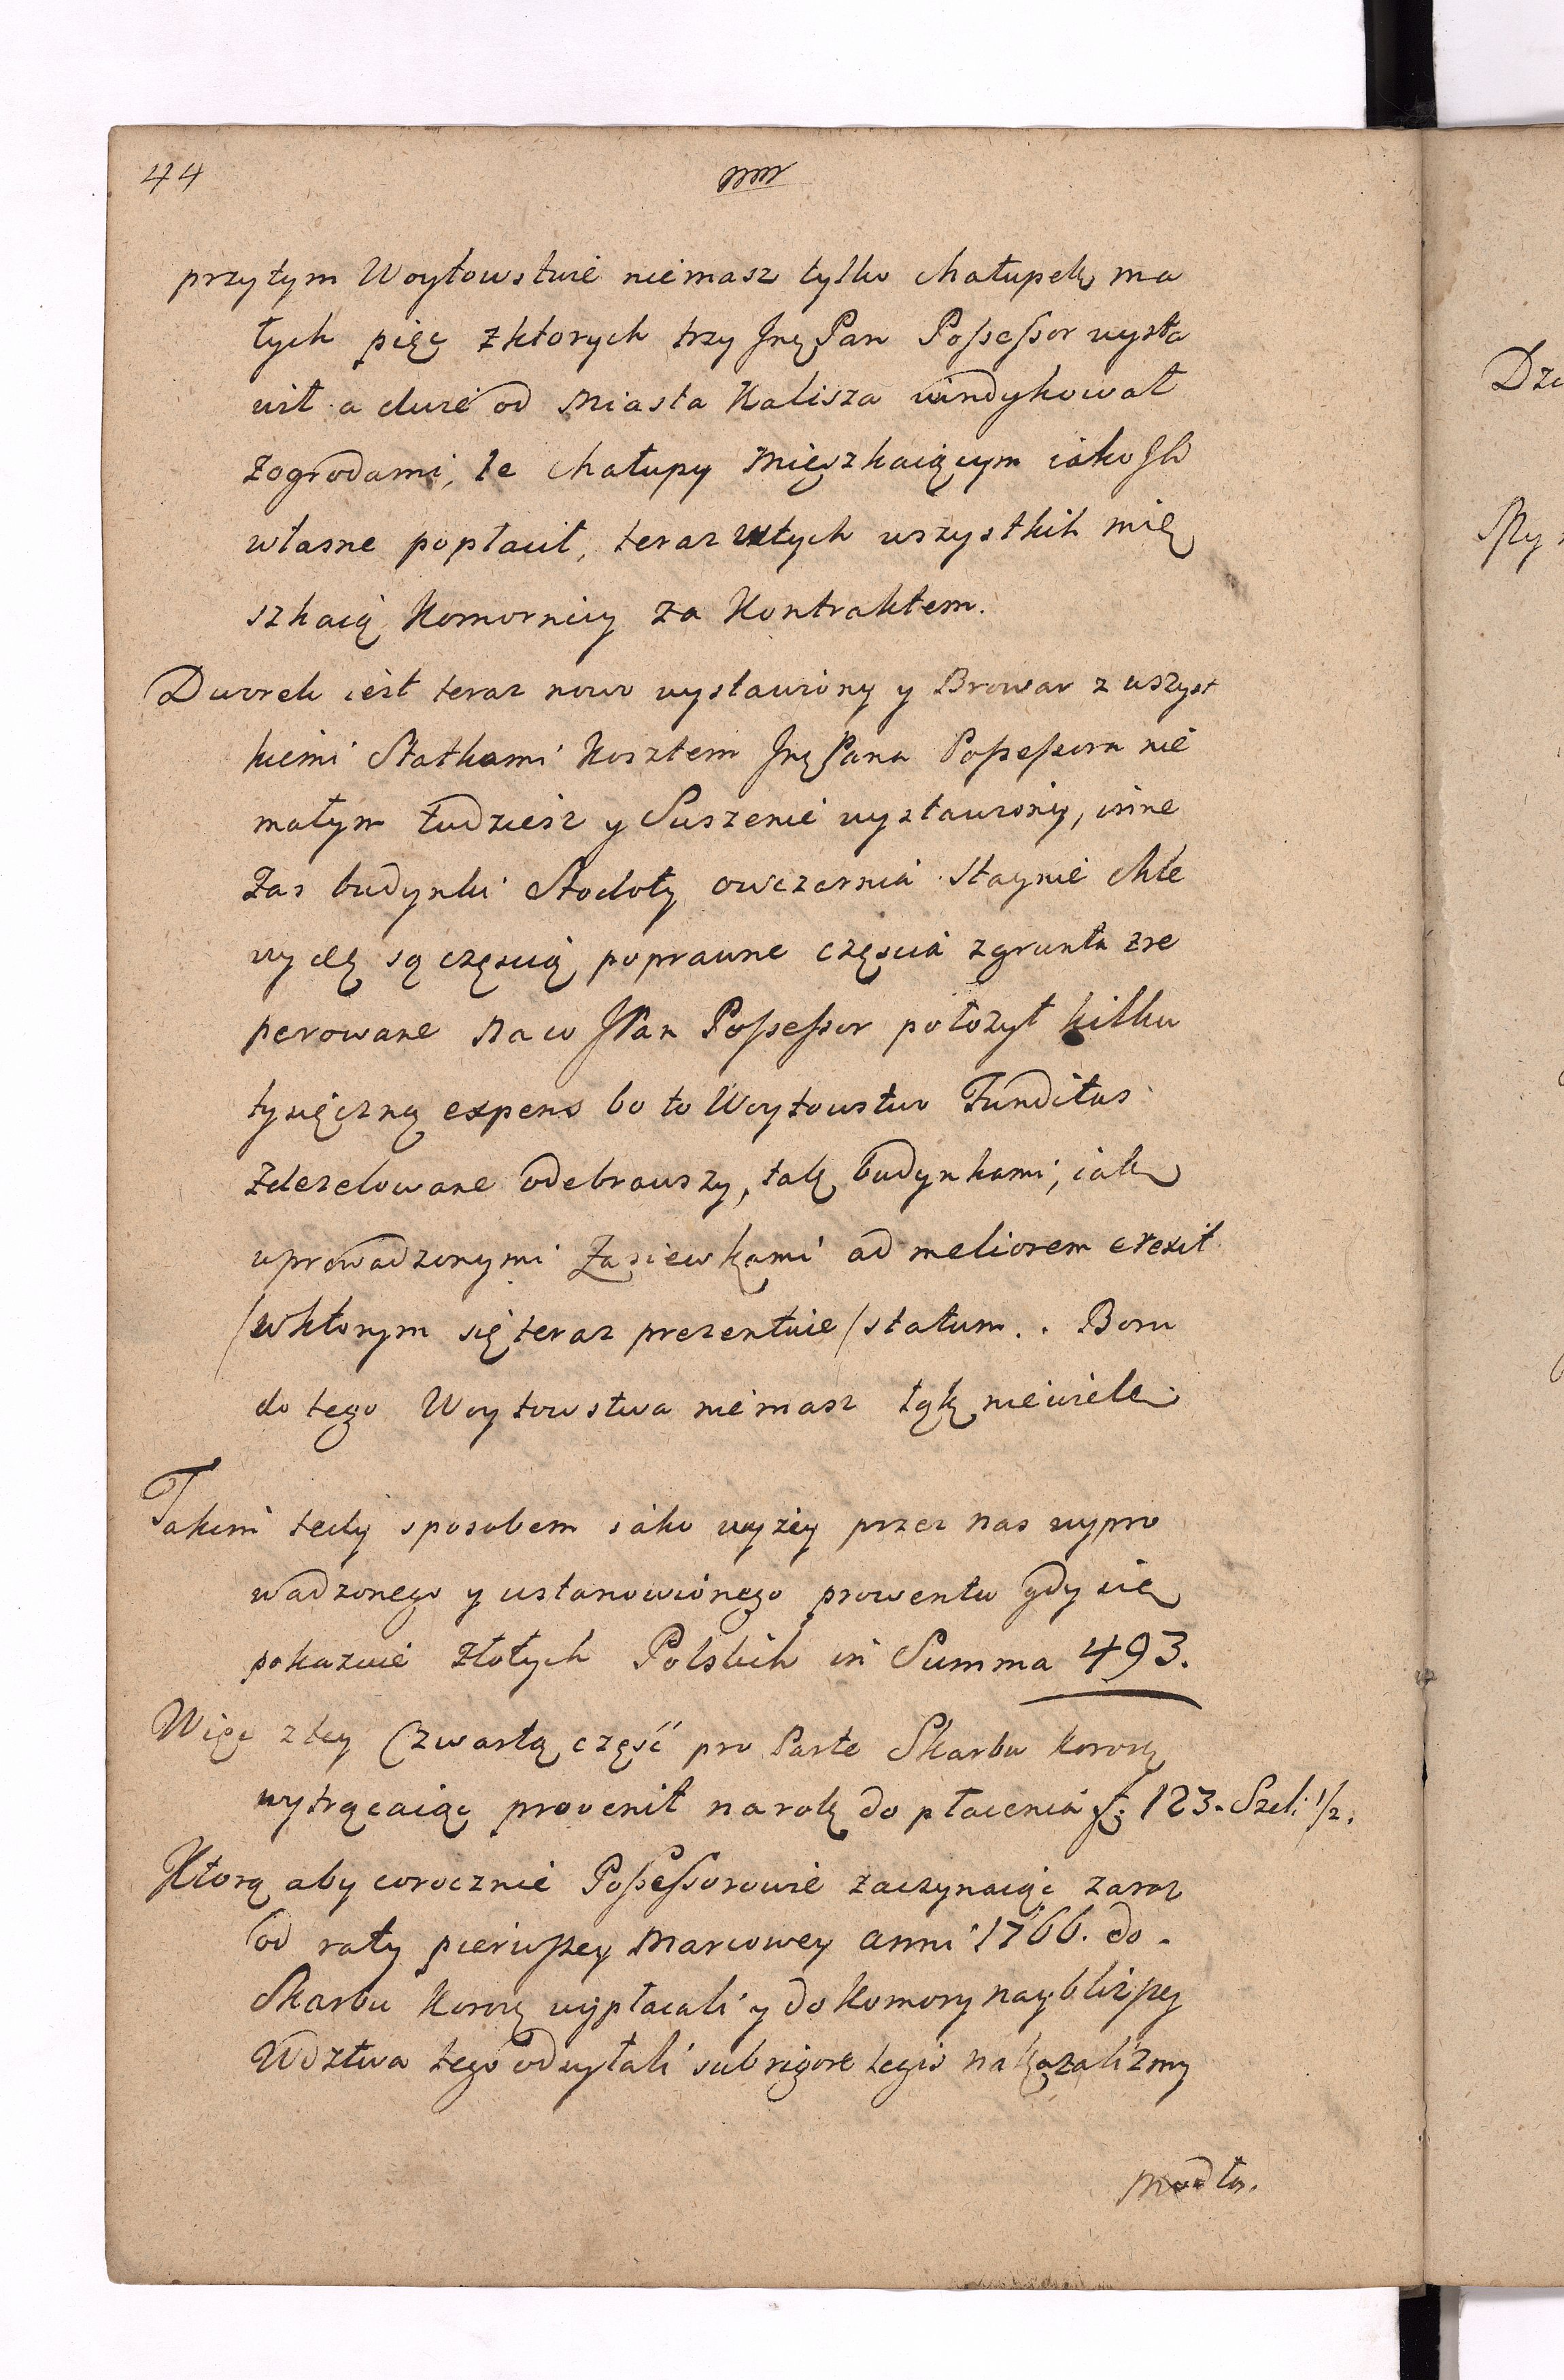 44
przytym Woytowstwie niemasz tylko chałupek ma
łych pięc zktorych trzy Jmę Pan Possessor wysta
wił a dwie od Miasta Kalisza windykował
zogrodami, te chałupy Mięszkaiącym iako
własne popłacił, teraz wtych wszystkih mię
szkaią Komornicy za Kontraktem.
Dworek iest teraz nowo wystawiony y Browar z wszyst
kiemi Statkami Kosztem Jmę Pana Possessora nie
małym tudziesz y Suszenie wystawiony, inne
zas budynki Stodoły owczarnia Staynie Chle
wy etę są częscią poprawne częscia zgruntu zre
perowane na co JPan Possessor położył kilku
tysięczną expens bo to Woytowstwo Funditus
zdezelowane odebrawszy, tak budynkami, iak
uprowadzonymi Zasiewkami ad meliorem erexit
/wktorym się teraz prezentuie/ statum.. Boru
do tego Woytowstwa niemasz łąk niewiele.
Takim tedy sposobem iako wyżey przez nas wypro
wadzonego y ustanowionego prowentu gdy się
pokazuie złotych Polskich in Summa 493.
Więc z tey Czwartą część pro Parte Skarbu Koronę
wytrącaiąc provenit narok do płacenia f: 123. Szel: 1/2.
Ktorą aby corocznie Possessorowie zaczynaiąc zaraz
od raty pierwszey Marcowey anni 1766. do
Skarbu Koronę wypłacali y do Komory naybliższey
Wdztwa tego odsyłali sub rigore legis nakazalizmy
Modła.
Dze